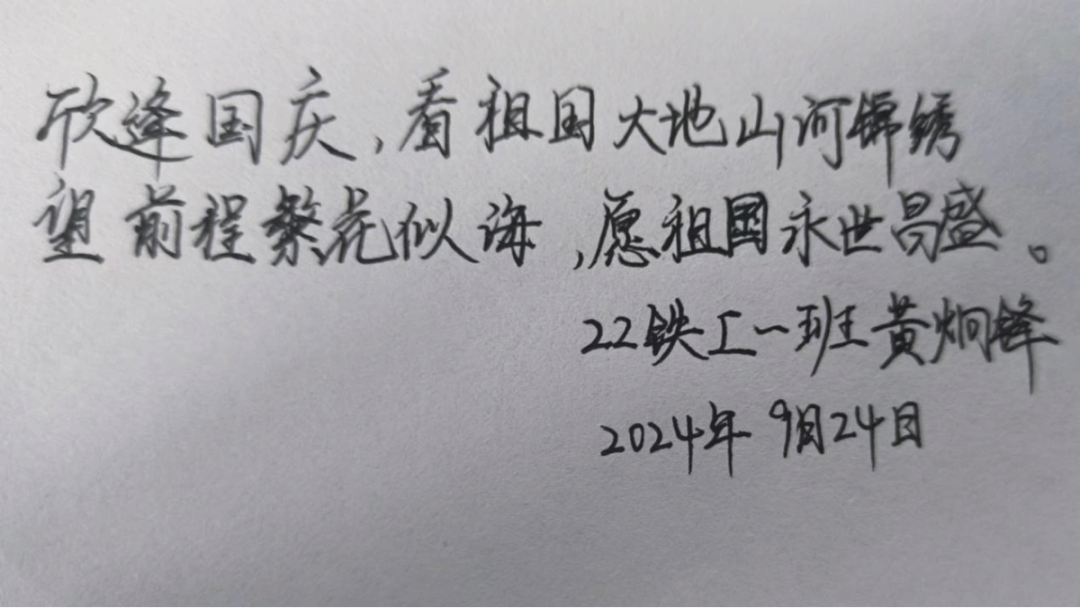 欣逢国庆,看祖国大地山河锦绣
望前程繁花似海,愿祖国永世昌盛。
22铁工一班黄炯锋
2024年 9月24日